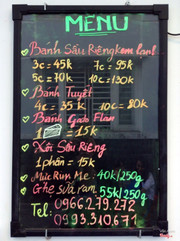 MENU
Bánh Sầu Riêng kem lạnh
3c = 45k 7c = 95k
5c = 70k 10c = 130k
Bánh Tuyết
4c = 35k 10c = 80k
Bánh Gato Flan
1 = 15k
Xôi Sầu Riêng
1 phần = 15k
Mực Rim Me: 40k/250g
Ghẹ sữa ram 55k/250g
Tel: 0966.279.272
0993.310.671